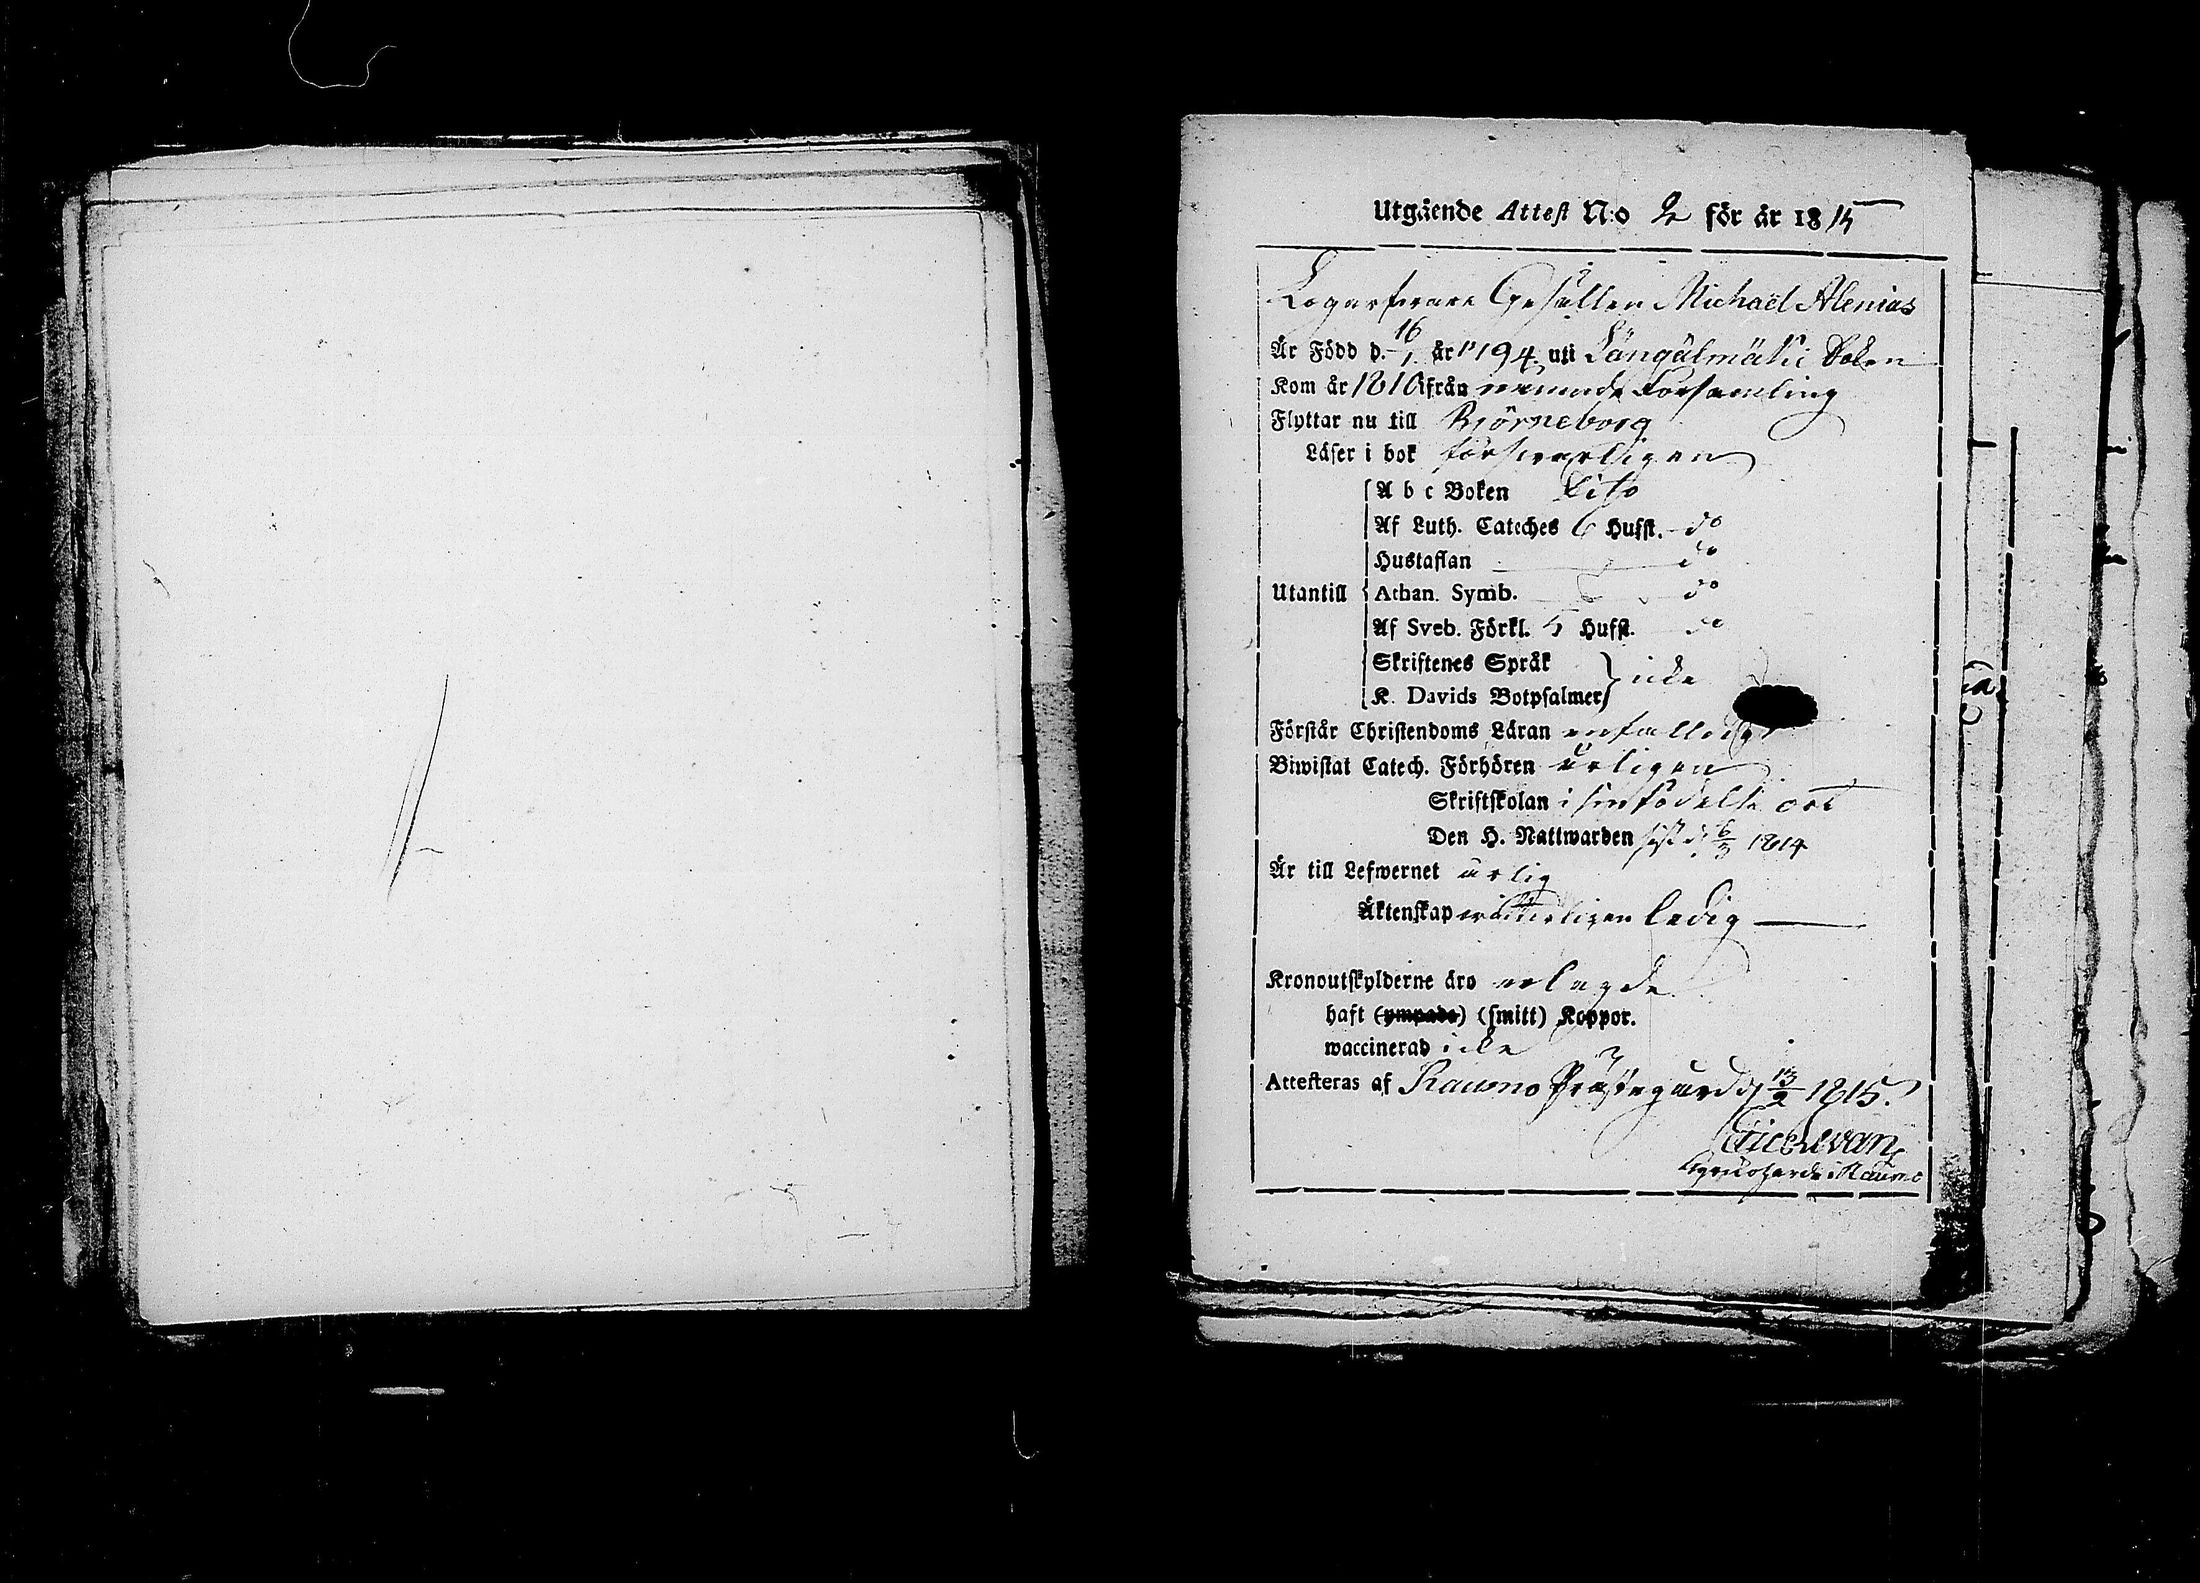 Utgående Attest N:o 2 för år 1815
Gesällen Michaël Alenius
Är Född d. 16/1 år 1794 uti Längälmäki Soken
Kom år 1810 ifrån nämnde Församling
Flyttar nu till Björneborg
Läser i bok försvarligen
A b c Boken Dito
Af Luth. Cateches 6 Hufst. do
Hustaflan do
Utantill Athan. Symb. do
Af Sveb. Förkl. 5 Hufst. do
Skriftenes Språk
icke
K. Davids Botpsalmer
Förstår Christendoms Läran enfalldigt
Biwistat Catech. Förhören årligen
Skriftskolan i sin födelse ort
Den H. Nattwarden sist d. 1814
Är till Lefwernet ärlig
Äktenskap ledig
Kronoutskylderne äro erlagde
haft (ympade) (smitt) Koppor.
waccinerad icke
Attesteras af Raumo Prästegård d. 13/2 1815.
i Raumo